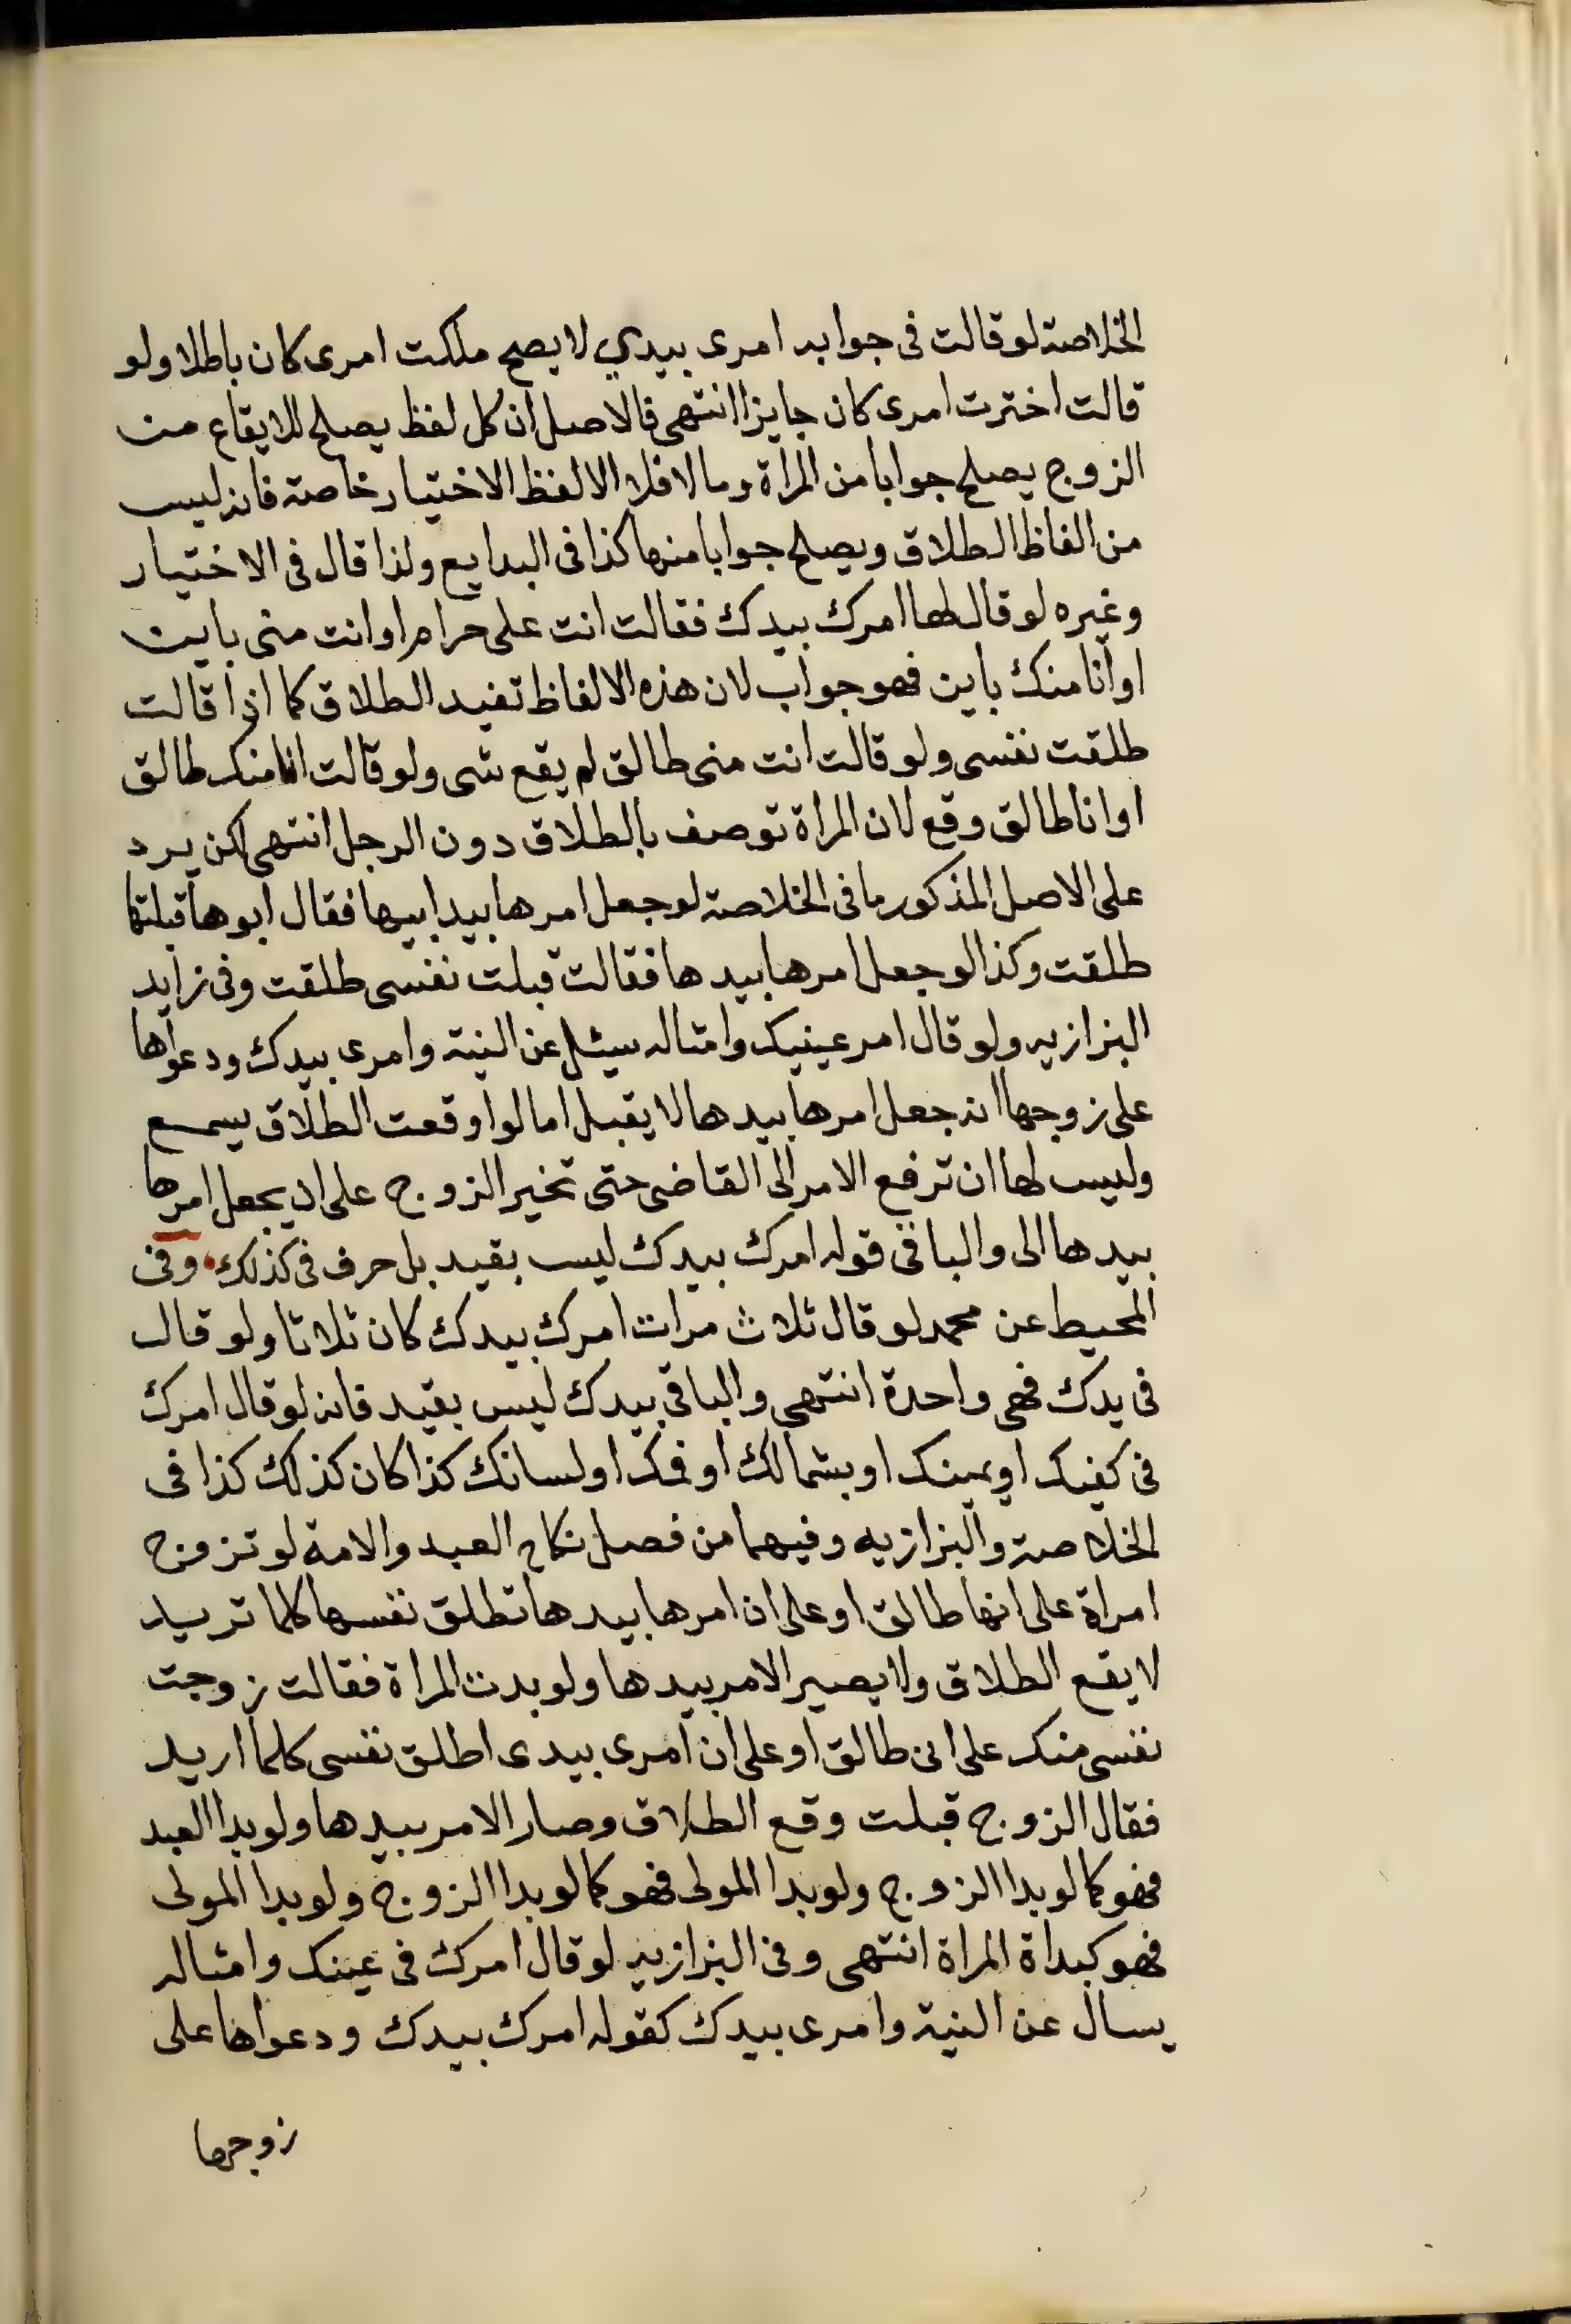 الخلاصة لو قالت فى جوابه امرى بيدي لا يصح ملكت امرى كان باطلا ولو
قالت اخترت امرى كان جايزا انتهى فالاصل ان كل لفظ يصلح للايقاع من
الزوج يصلح جوابا من المرأة وما لا فلا الا لفظ الاختيار خاصة فانه ليس
من الفاظ الطلاق ويصلح جوابا منها كذا فى البدايع ولذا قال فى الاختيار
وغيره لو قال لها امرك بيدك فقالت انت على حرام او انت منى باين
او أنا منك باين فهو جواب لان هذه الالفاظ تفيد الطلاق كما اذا قالت
طلقت نفسى ولو قالت انت منى طالق لم يقع شى ولو قالت انا منك طالق
او انا طالق وقع لان المراة توصف بالطلاق دون الرجل انتهى لكن يرد
على الاصل المذكور ما فى الخلاصة لو جعل امرها بيد ابيها فقال ابوها قبلتها
طلقت وكذا لو جعل امرها بيدها فقالت قبلت نفسى طلقت وفى
البزازيه ولو قال امر عينيك وامثاله سيئل عن النية وامرى بيدك ودعواها
على زوجها انه جعل امرها بيدها لا يقبل اما لو اوقعت الطلاق يسمع
وليس لها ان ترفع الامر الى القاضى حتى تخير الزوج على ان يجعل امرها
بيدها الى والبا فى قوله امرك بيدك ليس بقيد بل حرف فى كذلك، وفى
المحيط عن محمد لو قال ثلاث مرات امرك بيدك كان ثلاثا ولو قال
فى يدك فهى واحدة انتهى والباقى بيدك ليس بقيد فانه لو قال امرك
فى كفيك او يمينك او بشمالك او فمك او لسانك كذا كان كذلك كذا فى
الخلاصة والبزازيه وفيهما من فصل نكاح العبد والامة لو تزوج
امراة على انها طالق او على ان امرها بيدها تطلق نفسها كلما تريد
لا يقع الطلاق ولا يصير الامر بيدها ولو بدت المراة فقالت زوجت
نفسى منك على انى طالق او على ان امرى بيدى اطلق نفسى كلما اريد
فقال الزوج قبلت وقع الطلاق وصار الامر بيدها ولو بدا العبد
فهو كما لو بدا الزوج ولو بدا المولى فهو كما لو بدا الزوج ولو بدا المولى
فهو كبداة المراة انتهى وفى البزازيه لو قال امرك فى عينك وامثاله
يسال عن النية وامرى بيدك كقوله امرك بيدك ودعواها على
زوجها